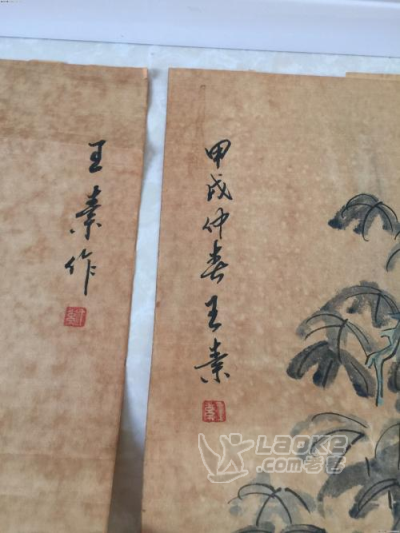 甲戌仲春王素
王素作
LAOKE
.com老客